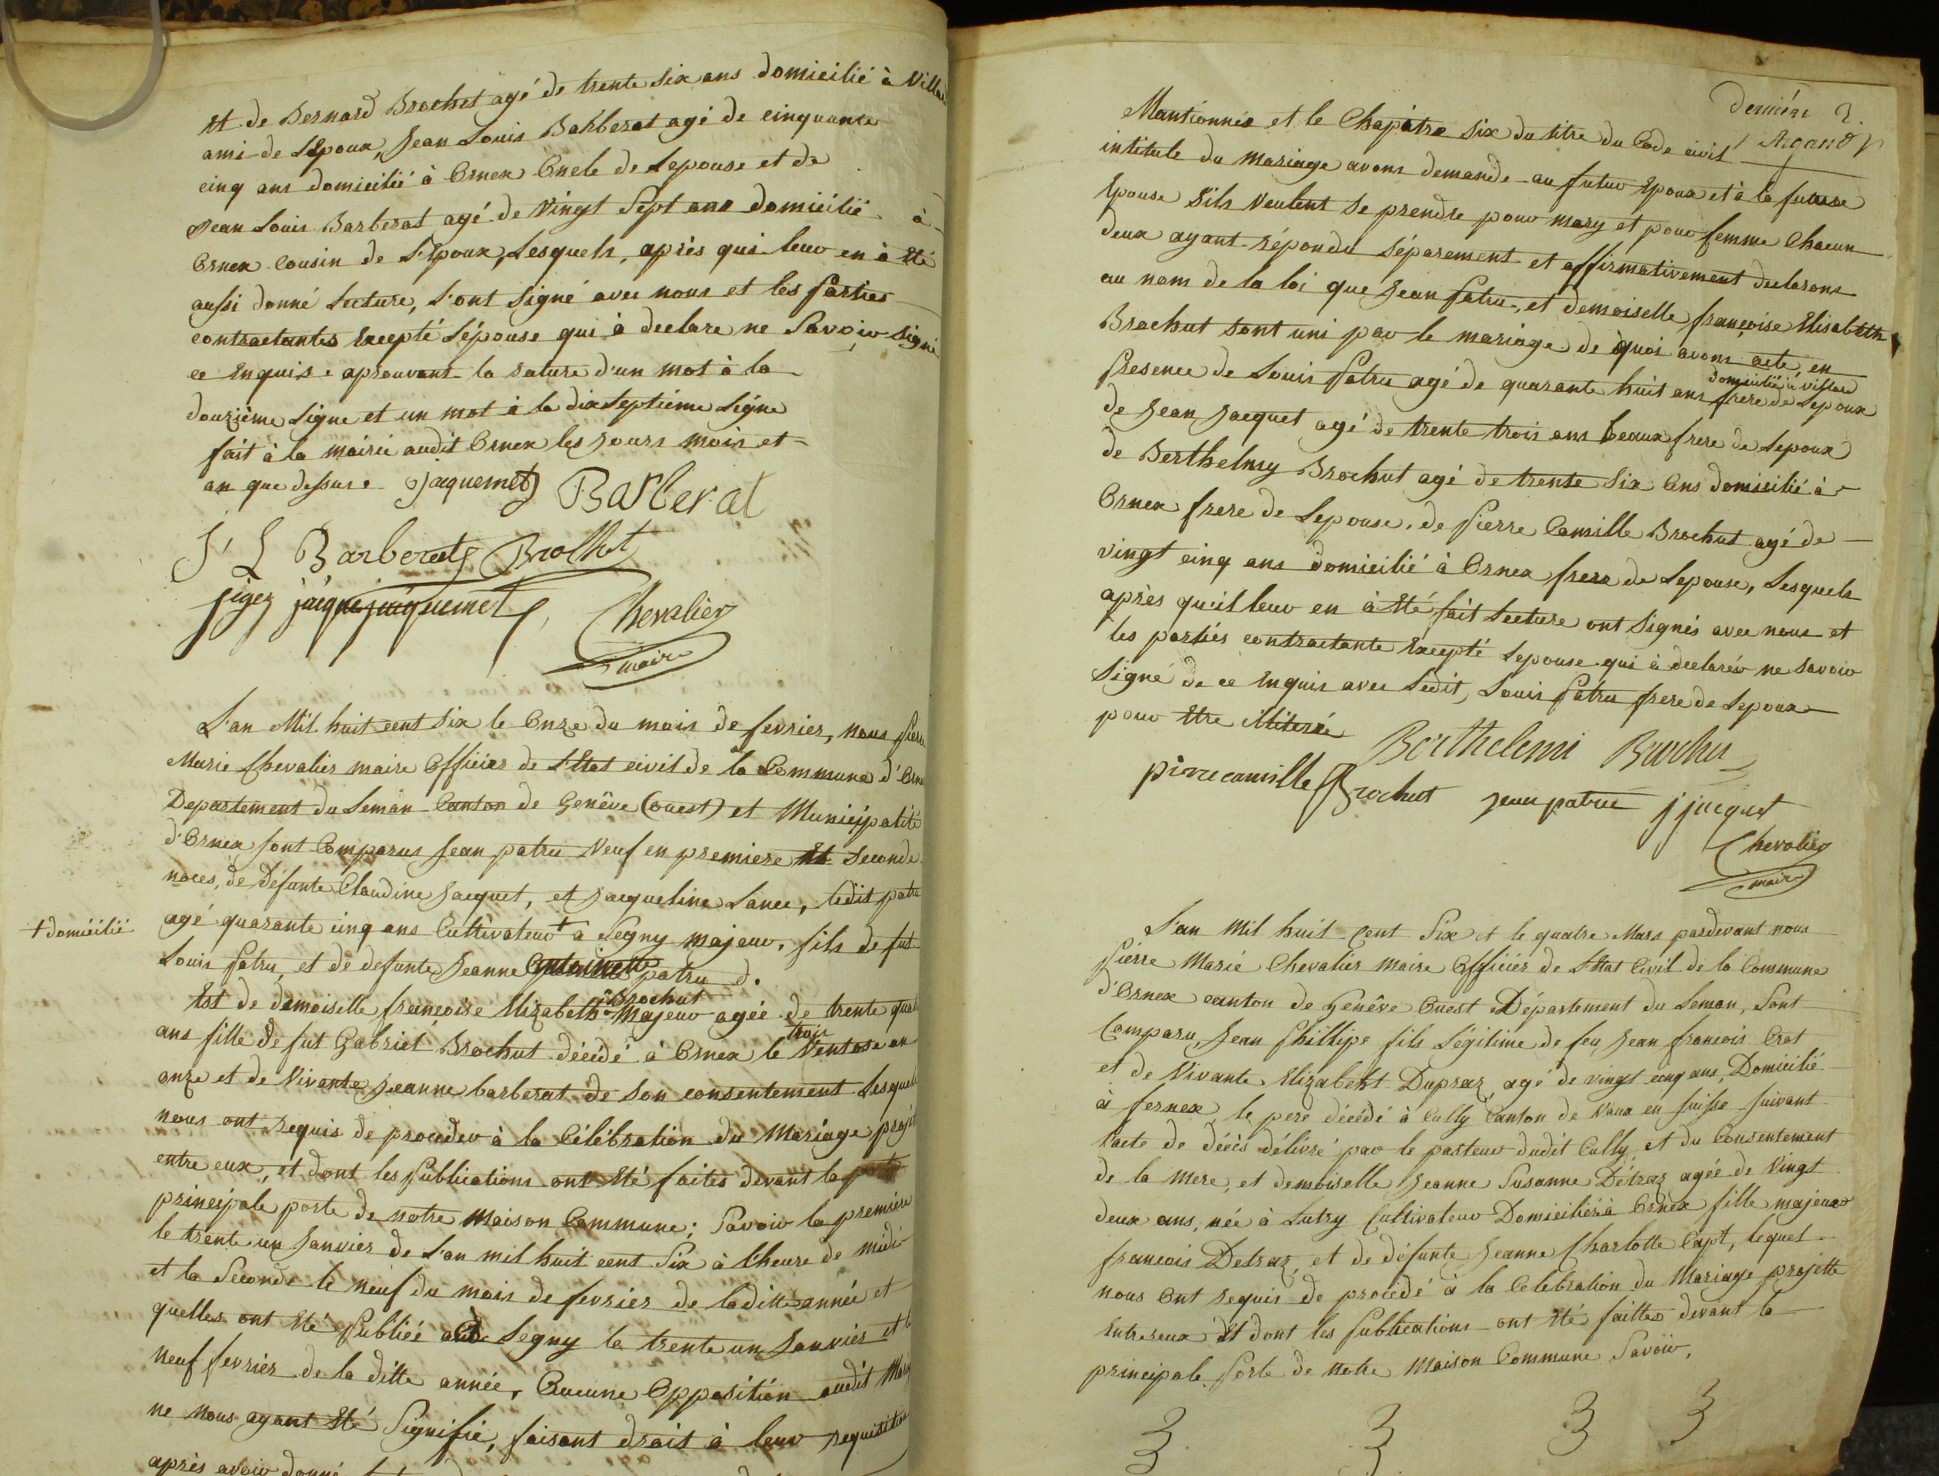 Et de Bernard Brochet agé de trente six ans domicilié à Villa
ami de L'Epoux, Jean Louis Barberat agé de cinquante
cinq ans domicilié à Ornex Oncle de Lepouse et de
Jean Louis Barberat agé de vingt Sept ans domicilié à
Ornex cousin de L'Epoux, Lesquels, après qui leur en à Eté
aussi donné Lecture, L'ont signé avec nous et les Parties
contractantes Excepté Lépouse qui à declare ne Savoir Signé
ce Enquis. aprouvant la rature d'un mot à la
douzième Ligne et un mot à la dixSeptième Ligne
fait à la mairie audit Ornex les Jours mois et
an que dessus. Jaquemet Barberat
J L Barberat Brochet
jaquemet Chevalier
maire
L'an Mil huit cent Six le Onze du mois de fevrier, nous Pierre
Marie Chevalier maire Officier de L'Etat civil de la Commune d'Orn
Departement du Leman Canton de Genêve (ouest) et Municipalité
d'Ornex sont Comparus Jean patru Veuf en premiere Et Seconde
noces, de défunte Claudine Jacquet, et Jacqueline Lance, Ledit patru
agé quarante cinq ans Cultivateur + a Segny majeur, fils de fut
+ domicilié
Louis Patru, et de defunte Jeanne patru d.
Brochut
Est de demoiselle françoise Elizabeth Majeur agée de trente quat
trois
ans fille de fut Gabriel Brochut décédé à Ornex le Ventose an
onze et de Vivante Jeanne barberat de son consentement Lesquels
nous ont requis de proceder à la Célébration du Mariage projet
entre eux, et dont les Publications ont Eté faites devant la
principale porte de notre Maison Commune; Savoir la premiere
le trente un Janvier de L'an mil huit cent Six à L'heure de midi
et la Seconde le neuf du mois de fevrier de laditte année et
quelles ont Eté Publiée à Segny le trente un Janvier et le
neuf fevrier de la ditte année, Aucune Opposition audit Mar
ne nous ayant Eté Signifié, faisant droit à leur requisition
après avoir donné
derniére 2.
Argand
Mantionnée et le Chapitre Six du titre du Code civil
intitule du Mariage avons demande au futur Epoux et à la future
Epouse S'ils Veulent Se prendre pour mary et pour femme Chacun
deux ayant répondu Séparement et affirmativement declarons
au nom de la loi que Jean Patru, et demoiselle françoise Elisabeth
Brochut sont uni par le mariage de quoi avons acte, en
domicilié à Villard
Presence de Louis Patru agé de quarante huit ans frere de Lepoux
de Jean Jacquet agé de trente trois ans beaux frere de Lepoux
de Berthelmy Brochut agé de trente Six Ans domicilié à
Ornex frere de Lepouse, de Pierre Camille Brochut agé de
vingt cinq ans domicilié à Ornex frere de Lepouse, Lesquels
après qu'il leur en à Eté fait Lecture ont Signés avec nous et
les parties contractante Excepté Lepouse qui à declarér ne Savoir
Signé de ce Enquis avec Ledit, Louis Patru frere de Lepoux
pour Etre illiteré
Berthelemi Brochu
pierre camille Brochut jean patru j jacquet
Chevalier
maire
L'an Mil huit Cent Six et le quatre Mars pardevant nous
Pierre Marie Chevalier Maire Officier de L'Etat Civil de la Commune
d'Ornex canton de Genêve Ouest Département du Leman, Sont
Comparu, Jean Phillipe fils Légitime de feu Jean francois Crot
et de Vivante Elizabeht Dupraz, agé de vingt cinq ans, Domicilié
à fernex, le pere décédé à Cully Canton de Vaux en Suisse Suivant
l'acte de décès délivré par le pasteur dudit Cully, et du Consentement
de la Mere, et demoiselle Jeanne Susanne Détraz agée de Vingt
deux ans, née à Lutry Cultivateur Domiciliéé à Ornex fille majeure
francois Detraz, et de défunte Jeanne Charlotte Capt, lequel
nous Ont requis de procédé à la Celebration du Mariage projetté
Entreeux Et dont les Publications ont Eté faittes devant la
principale Porte de notre Maison Commune Savoir.